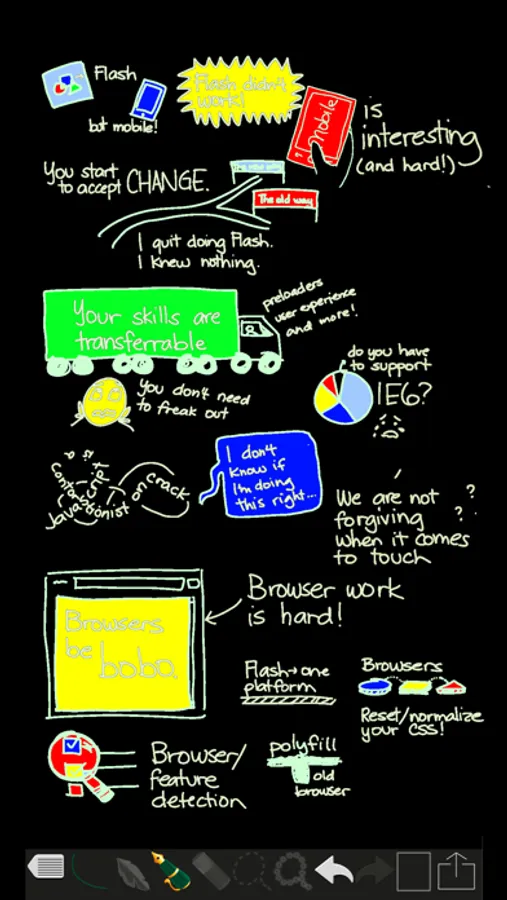 Flash
but mobile!
Flash didn't
work!
Mobile
is
interesting
(and hard!)
You start
to accept CHANGE.
The new way
The old way
I quit doing Flash.
I knew nothing.
Your skills are
transferrable
preloaders
user experience
and more!
You don't need
to freak out
do you have
to support
IE6?
JavaScript is a
contortionist
on crack
I don't
know if
I'm doing
this right...
We are not
forgiving
when it comes
to touch
? ? ?
Browsers
be boba
Browser work
is hard!
Flash→one
platform
Browsers
Reset/normalize
your CSS!
Browser/
feature
detection
polyfill
old
browser